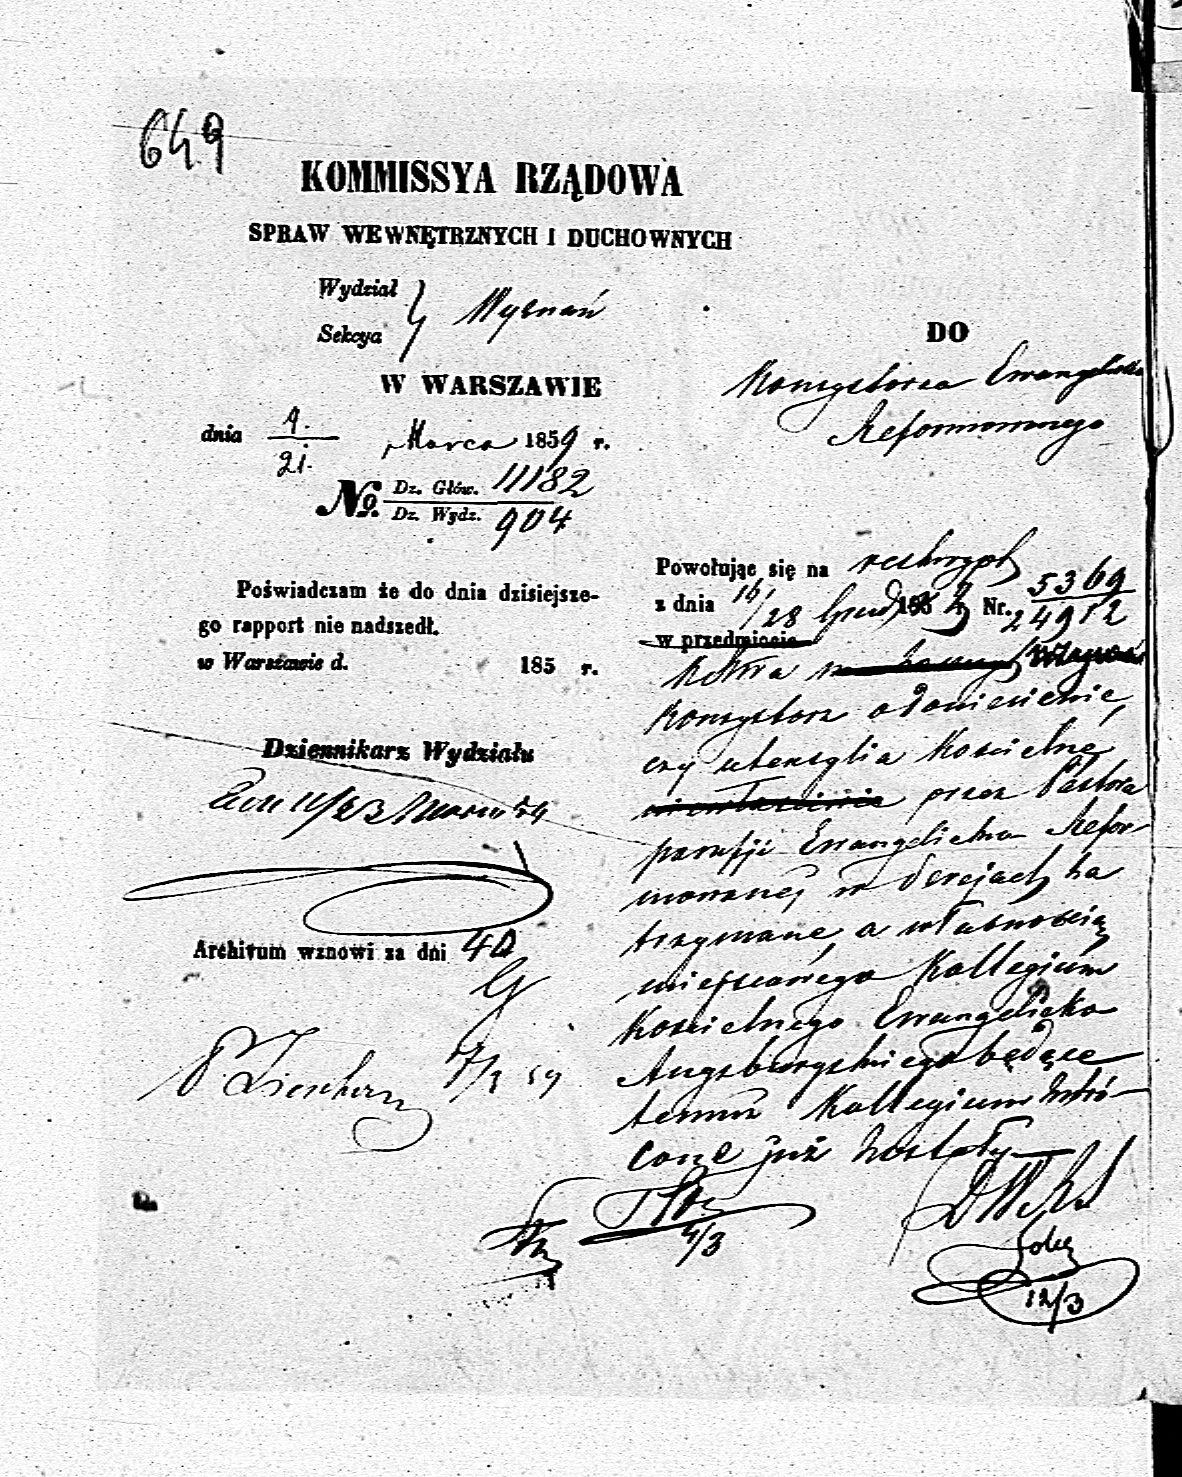 649
KOMMISSYA RZĄDOWA
SPRAW WEWNĘTRZNYCH I DUCHOWNYCH
Wydział
Sekcya
Wyznań
W WARSZAWIE
dnia 9. / 21. Marca 1859 r.
No. Dz. Głów. 11182
Dz. Wydz. 904
Poświadczam że do dnia dzisiejsze-
go rapport nie nadszedł.
w Warszawie d. 185 r.
Dziennikarz Wydziału
Archivum wznowi za dni 40
DO
Konsystorza Ewangelicko
Reformowanego
Powołując się na reskrypt
z dnia 16/28 Nr. 5369
24912
w przedmiocie
Konsystorz o doniesienie,
czy utensylia Kościelne
przez Pastora
parafji Ewangelicko Refor-
mowanej w Serejach za
trzymane, a własnością
miejscowego Kollegium
Kościelnego Ewangelicko
Augsburgskiego będące
temuż Kollegium zwró-
cone już zostały
4/3
12/3